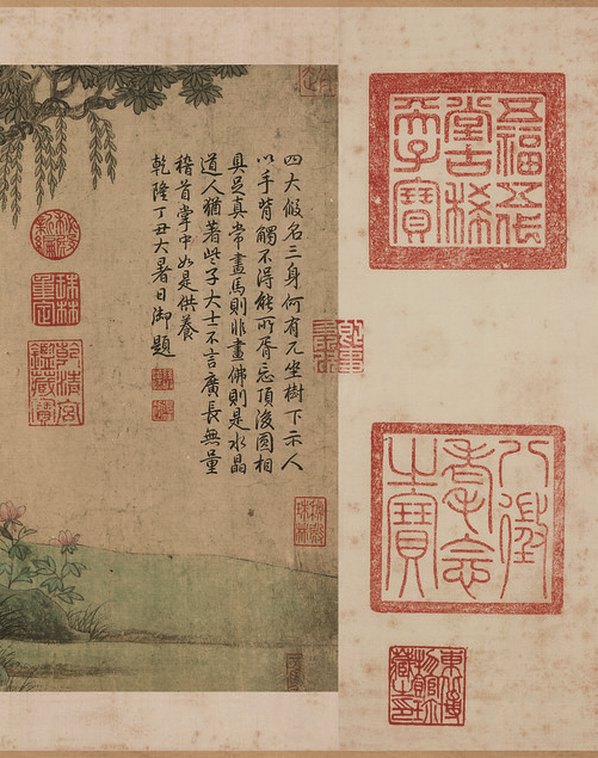 五福五代
堂古稀
天子寶
八徵
耄念
之寶
東北博
物館珍
藏之印
四大假名三身何有兀坐樹下示人
以手背觸不得能所胥忘頂後圓相
具足真常畫馬則非畫佛則是水晶
道人猶著些子大士不言廣長無量
稽首掌中如是供養
乾隆丁丑大暑日御題
秘殿
珠林
秘殿
新編
珠林
重定
乾清宮
鑑藏寶